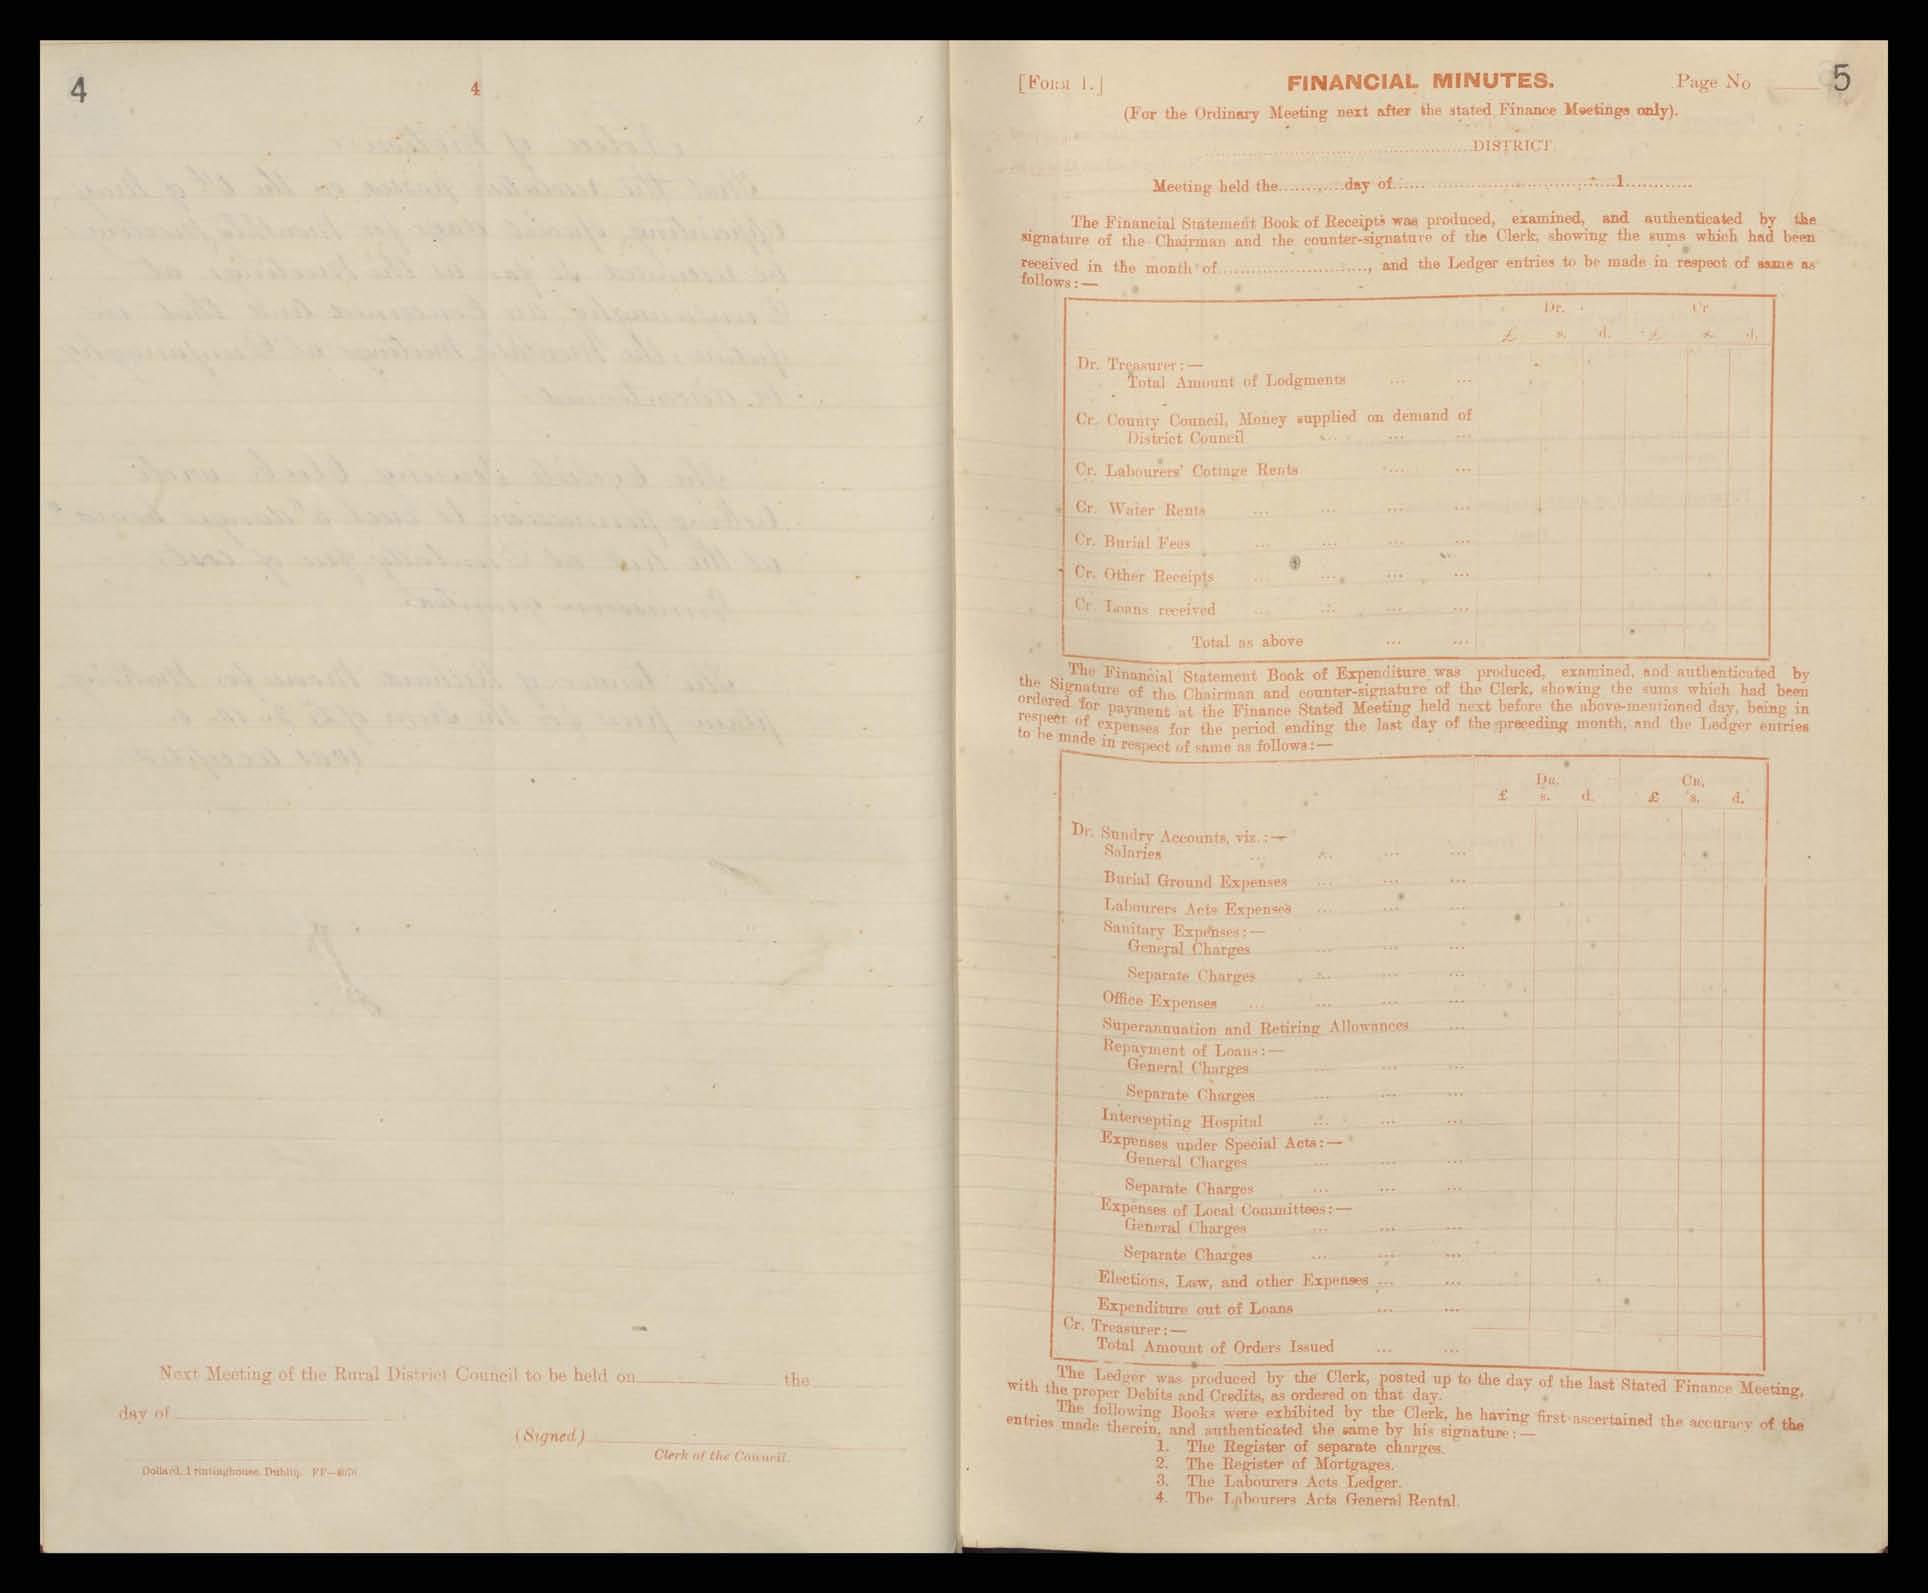 4
4
Next Meeting of the Rural District Council to be held on the
day of
(Signed)
Clerk of the Council.
Dollard, Printinghouse, Dublin.
[Form 1.]
FINANCIAL MINUTES.
Page No
5
(For the Ordinary Meeting next after the stated Finance Meetings only).
DISTRICT.
Meeting held the............day of............1............
The Financial Statement Book of Receipts was produced, examined, and authenticated by the
signature of the Chairman and the counter-signature of the Clerk, showing the sums which had been
received in the month of............, and the Ledger entries to be made in respect of same as
follows:—
Dr. Cr
£ s. d. £ s. d.
Dr. Treasurer:—
Total Amount of Lodgments ... ...
Cr. County Council, Money supplied on demand of
District Council ... ... ...
Cr. Labourers' Cottage Rents ... ...
Cr. Water Rents ... ... ... ...
Cr. Burial Fees ... ... ... ...
Cr. Other Receipts ... ... ... ...
Cr. Loans received ... ... ... ...
Total as above ... ...
The Financial Statement Book of Expenditure was produced, examined, and authenticated by
the Signature of the Chairman and counter-signature of the Clerk, showing the sums which had been
ordered for payment at the Finance Stated Meeting held next before the above-mentioned day, being in
respect of expenses for the period ending the last day of the preceding month, and the Ledger entries
to be made in respect of same as follows:—
Dr. Cr.
£ s. d. £ s. d.
Dr. Sundry Accounts, viz.:—
Salaries ... ... ... ...
Burial Ground Expenses ... ... ...
Labourers Acts Expenses ... ... ...
Sanitary Expenses:—
General Charges ... ... ...
Separate Charges ... ... ...
Office Expenses ... ... ... ...
Superannuation and Retiring Allowances ...
Repayment of Loans:—
General Charges ... ... ...
Separate Charges ... ... ...
Intercepting Hospital ... ... ...
Expenses under Special Acts:—
General Charges ... ... ...
Separate Charges ... ... ...
Expenses of Local Committees:—
General Charges ... ... ...
Separate Charges ... ... ...
Elections, Law, and other Expenses ... ...
Expenditure out of Loans ... ...
Cr. Treasurer:—
Total Amount of Orders Issued ... ...
The Ledger was produced by the Clerk, posted up to the day of the last Stated Finance Meeting,
with the proper Debits and Credits, as ordered on that day.
The following Books were exhibited by the Clerk, he having first ascertained the accuracy of the
entries made therein, and authenticated the same by his signature:—
1. The Register of separate charges.
2. The Register of Mortgages.
3. The Labourers Acts Ledger.
4. The Labourers Acts General Rental.